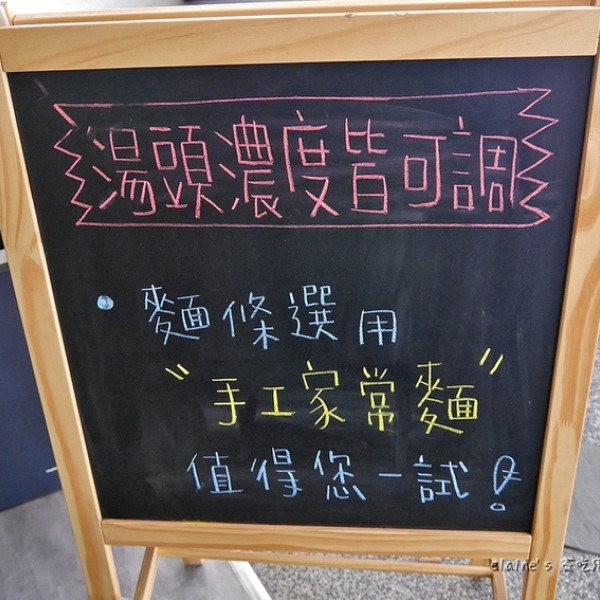 湯頭濃度皆可調
• 麵條選用
"手工家常麵"
值得您一試!
elaine's